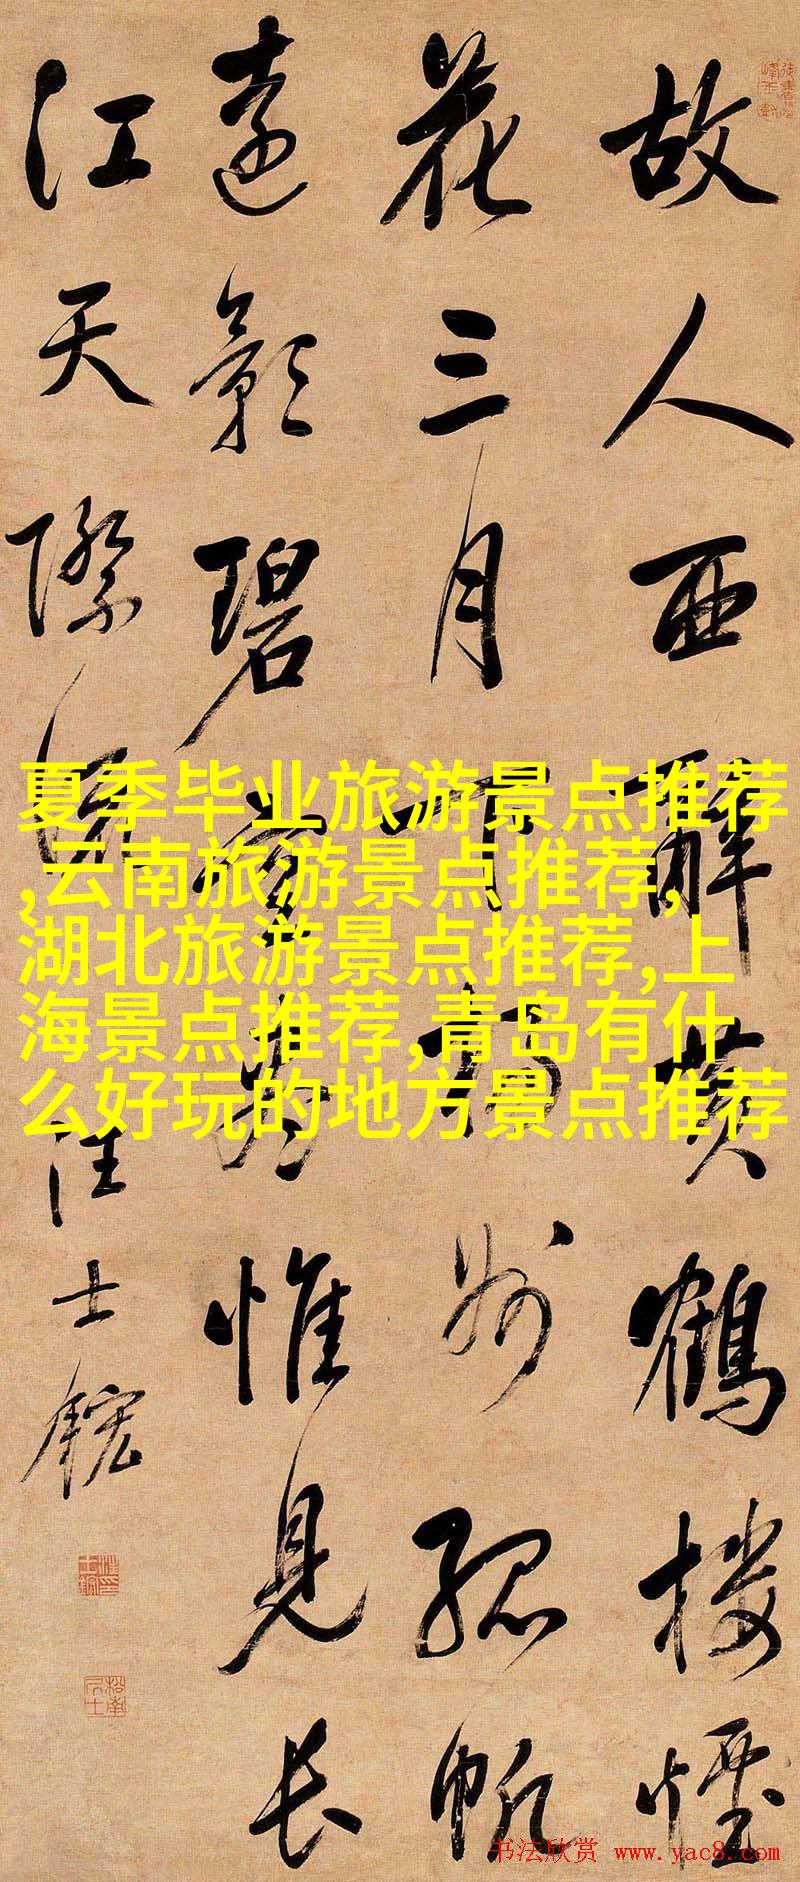 故人西辭黄鶴樓煙
花三月下揚州孤帆
遠影碧空盡惟見長
江天際流 汪士鋐
夏季毕业旅游景点推荐
,云南旅游景点推荐,
湖北旅游景点推荐,上
海景点推荐,青岛有什
么好玩的地方景点推荐
书法欣赏 www.yac8.com